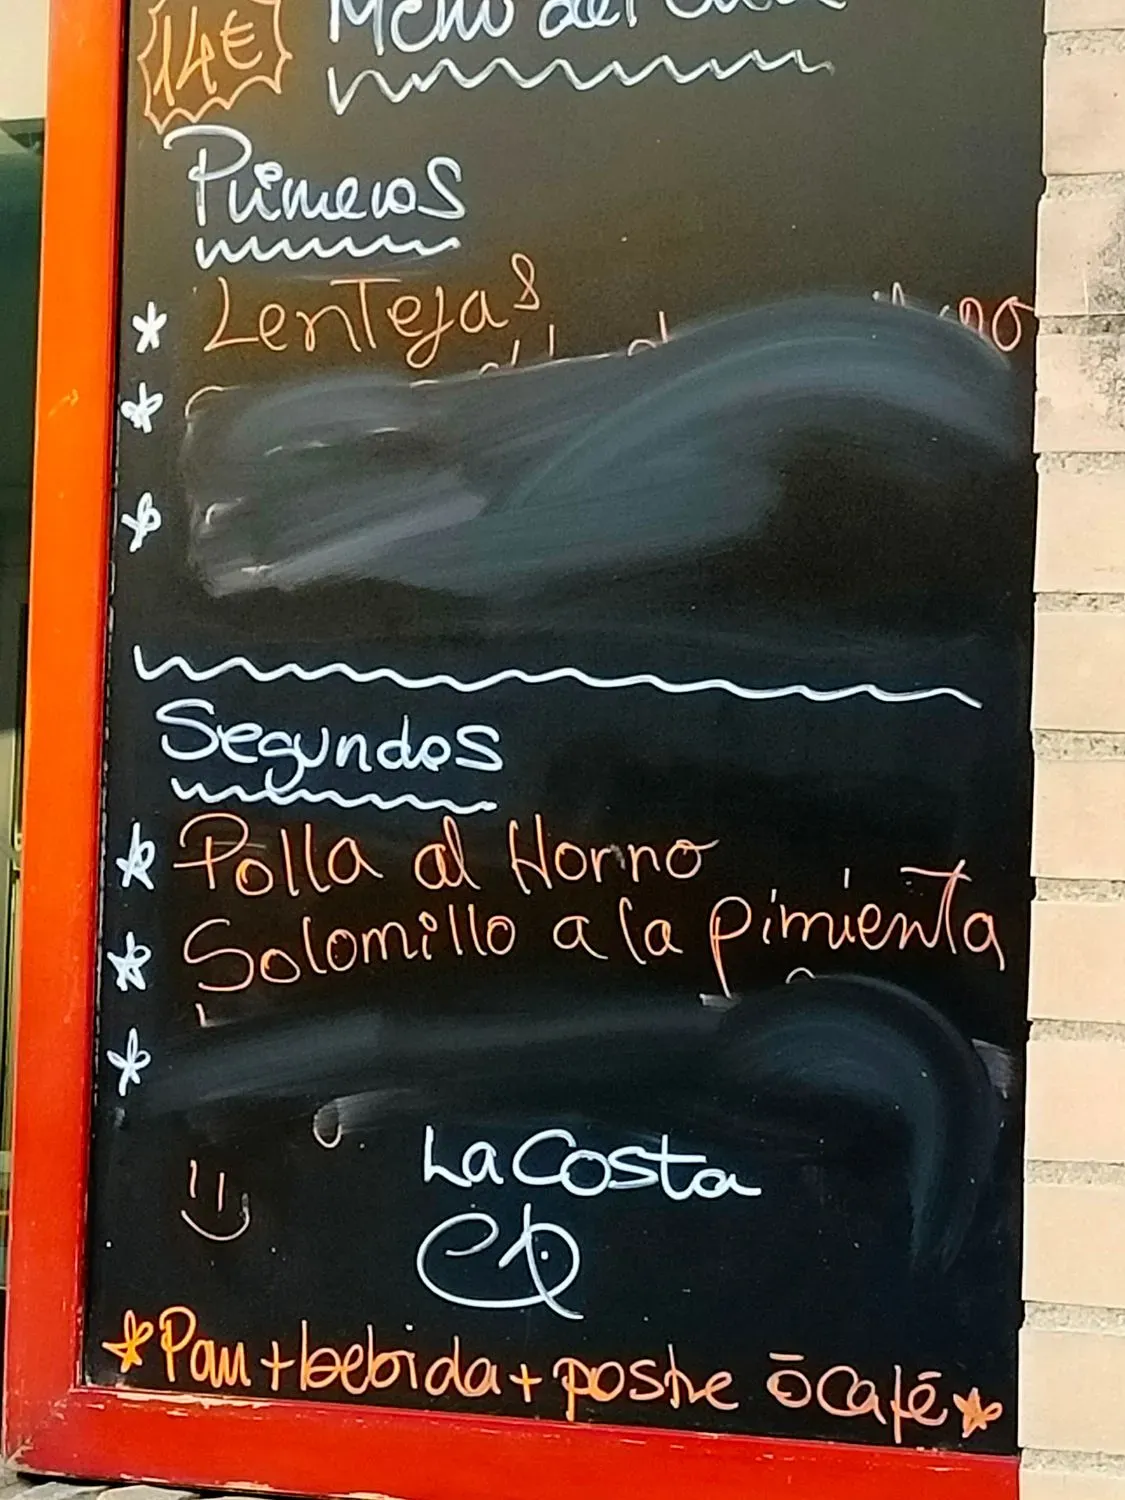 14€ Menú del
Primeros
* Lentejas
*
*
Segundos
* Polla al Horno
* Solomillo a la pimienta
*
La Costa
*Pan+bebida+postre ō Cafē*